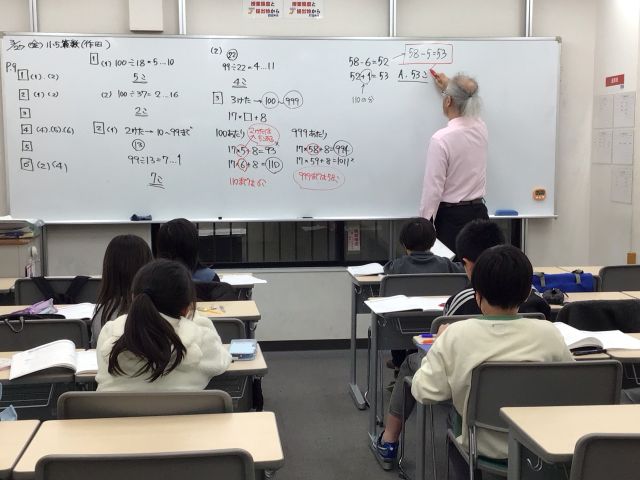 (金) 小5算数(作田)
P.9
1 (1). (2)
2
3
4 (4).(5).(6)
5
6 (2) (4)
1 (1) 100÷18=5…10
5こ
(2) 100÷37=2…26
2こ
2 (1) 2けた→10~99まで
13
99÷13=7…1
7こ
(2)
22
99÷22=4…11
4こ
3 3けた→100~999
17×□+8
100あたり
17×5+8=93
17×6+8=110
110までは5こ
999あたり
17×58+8=994
17×59+8=1011
999までは58こ
58-6=52
52+1=53
110の分
58-5=53
A. 53こ